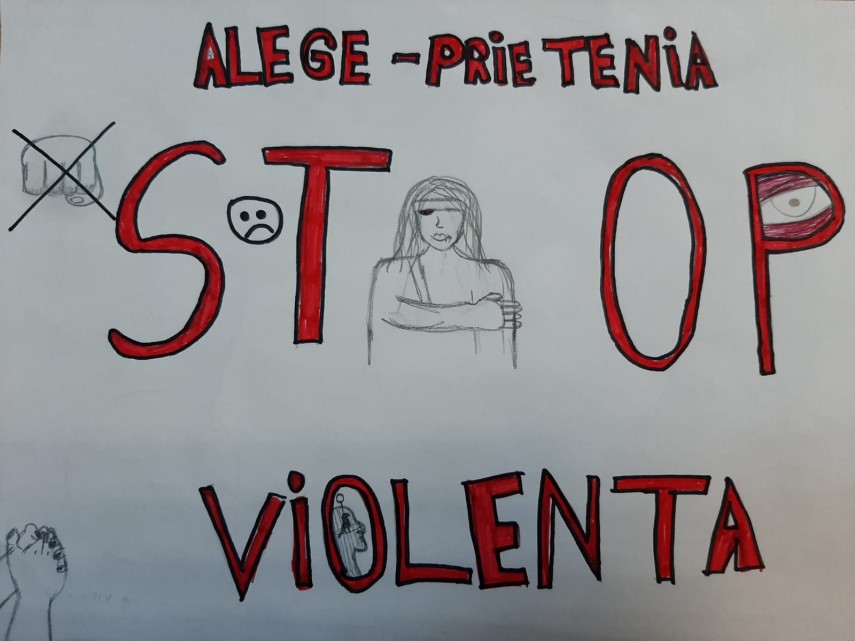 ALEGE - PRiETENiA
STOP
ViOLENTA